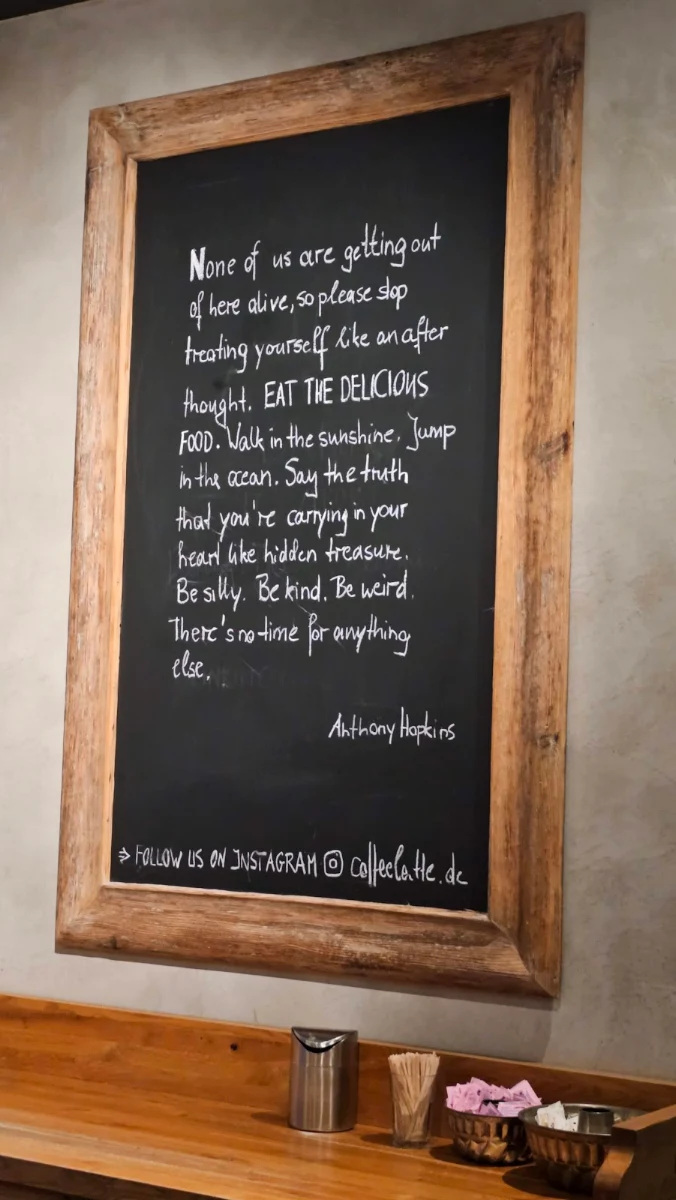 None of us are getting out
of here alive, so please stop
treating yourself like an after
thought. EAT THE DELICIOUS
FOOD. Walk in the sunshine. Jump
in the ocean. Say the truth
that you're carrying in your
heart like hidden treasure.
Be silly. Be kind. Be weird.
There's no time for anything
else.
Anthony Hopkins
⇒ FOLLOW US ON INSTAGRAM coffeelatte.de